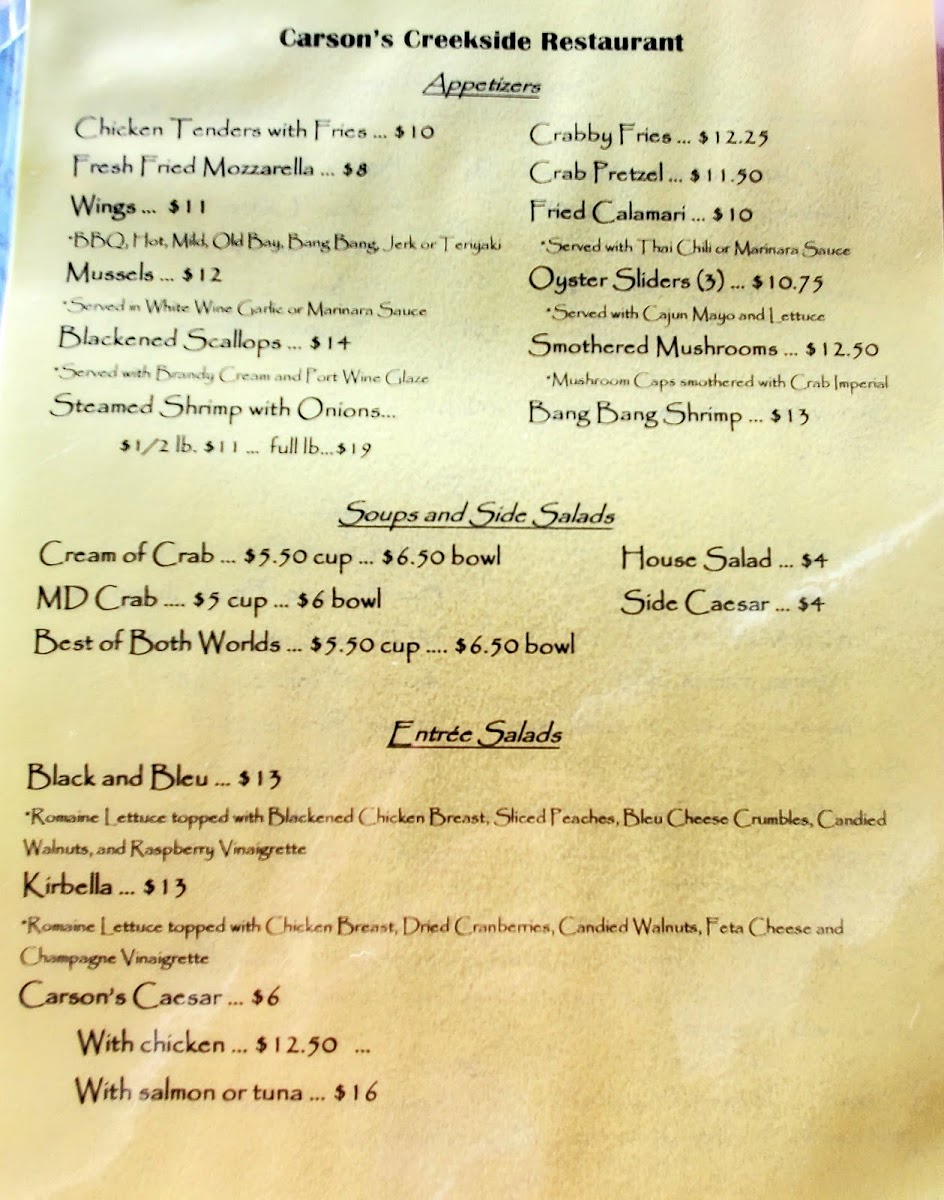 Carson's Creekside Restaurant
Appetizers
Chicken Tenders with Fries ... $10
Fresh Fried Mozzarella ... $8
Wings ... $11
*BBQ, Hot, Mild, Old Bay, Bang Bang, Jerk or Teriyaki
Mussels ... $12
*Served in White Wine Garlic or Marinara Sauce
Blackened Scallops ... $14
*Served with Brandy Cream and Port Wine Glaze
Steamed Shrimp with Onions...
$1/2 lb. $11 ... full lb...$19
Crabby Fries ... $12.25
Crab Pretzel ... $11.50
Fried Calamari ... $10
*Served with Thai Chili or Marinara Sauce
Oyster Sliders (3) ... $10.75
*Served with Cajun Mayo and Lettuce
Smothered Mushrooms ... $12.50
*Mushroom Caps smothered with Crab Imperial
Bang Bang Shrimp ... $13
Soups and Side Salads
Cream of Crab ... $5.50 cup ... $6.50 bowl
MD Crab .... $5 cup ... $6 bowl
Best of Both Worlds ... $5.50 cup .... $6.50 bowl
House Salad ... $4
Side Caesar ... $4
Entrée Salads
Black and Bleu ... $13
*Romaine Lettuce topped with Blackened Chicken Breast, Sliced Peaches, Bleu Cheese Crumbles, Candied
Walnuts, and Raspberry Vinaigrette
Kirbella ... $13
*Romaine Lettuce topped with Chicken Breast, Dried Cranberries, Candied Walnuts, Feta Cheese and
Champagne Vinaigrette
Carson's Caesar ... $6
With chicken ... $12.50 ...
With salmon or tuna ... $16